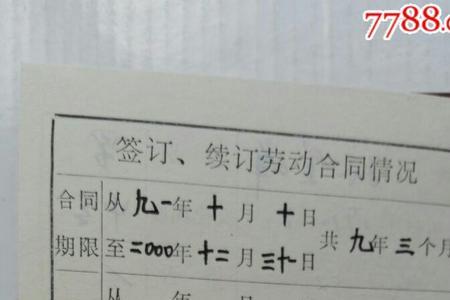 7788.c
签订、续订劳动合同情况
合同期限
从九一年十月十日
至二000年十二月三十日
共九年三个月
从 年 月